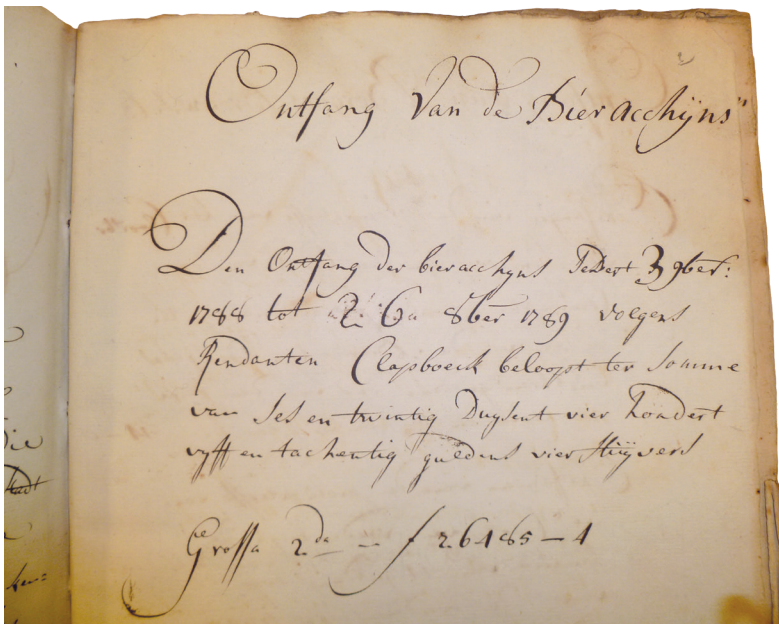 Ontfang Van de Bier acchÿns
Den Ontfang der bieracchyns Sedert 3 9ber:
1788 tot 26a 8ber 1789 volgens
Rendanten Clapboeck beloopt ter somme
van ses en twintig Duysent vier hondert
vyff en tachentig guldens vier stuÿvers
Grossa 2da - f 26485 - 4
die
stadt